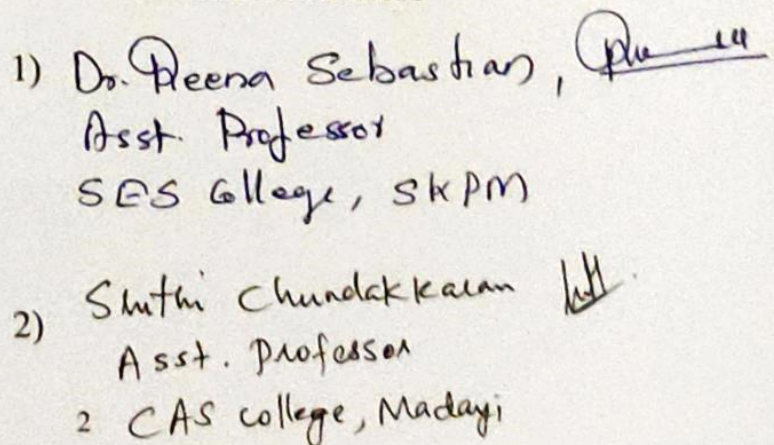 1) Dr. Preena Sebastian,
Asst. Professor
SES College, SKPM
2) Shithi Chundakkaran
Asst. Professor
2 CAS college, Madayi